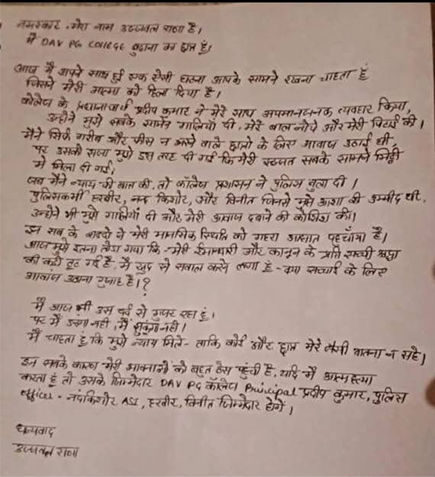 नमस्कार, मेरा नाम उज्जवल राणा है।
मैं DAV PG COLLEGE बुढ़ाना का छात्र हूँ।
आज मैं अपने साथ हुई एक ऐसी घटना आपके सामने रखना चाहता हूँ
जिसने मेरी आत्मा को हिला दिया है।
कॉलेज के प्रधानाचार्य प्रदीप कुमार ने मेरे साथ अपमानजनक व्यवहार किया,
उन्होंने मुझे सबके सामने गालियाँ दी, मेरे बाल नोचे और मेरी पिटाई की।
मैंने सिर्फ गरीब और फीस न भरने वाले छात्रों के लिए आवाज उठाई थी
पर उसकी सजा मुझे इस तरह दी गई कि मेरी इज्जत सबके सामने मिट्टी
में मिला दी गई।
जब मैंने न्याय की बात की, तो कॉलेज प्रशासन ने पुलिस बुला दी।
पुलिसकर्मी नन्द किशोर, और विनीत जिनसे मुझे आशा की उम्मीद थी,
उन्होंने भी मुझे गालियाँ दी और मेरी आवाज दबाने की कोशिश की।
इन सब के बाद से मेरी मानसिक स्थिति को गहरा आघात पहुँचा है।
आज मुझे ऐसा लगा गया कि मेरी ईमानदारी और कानून के प्रति सच्ची श्रद्धा
की कड़ी टूट गई है, मैं खुद से सवाल करने लगा हूँ - क्या सच्चाई के लिए
आवाज उठाना गुनाह है।?
मैं आज भी उस दर्द से गुजर रहा हूं।
पर मैं डरूंगा नही, मैं झुकूंगा नही।
मैं चाहता हूं कि मुझे न्याय मिले - ताकि कोई और छात्र मेरे जैसी यातना न सहे।
इन सबके कारण मेरी भावनाओं को बहुत ठेस पहुंची है, यदि मैं आत्महत्या
करता हूं तो उसके जिम्मेदार DAV PG कॉलेज Principal प्रदीप कुमार, पुलिस
officer - नंदकिशोर ASI, विनीत जिम्मेदार होंगे।
धन्यवाद
उज्जवल राणा